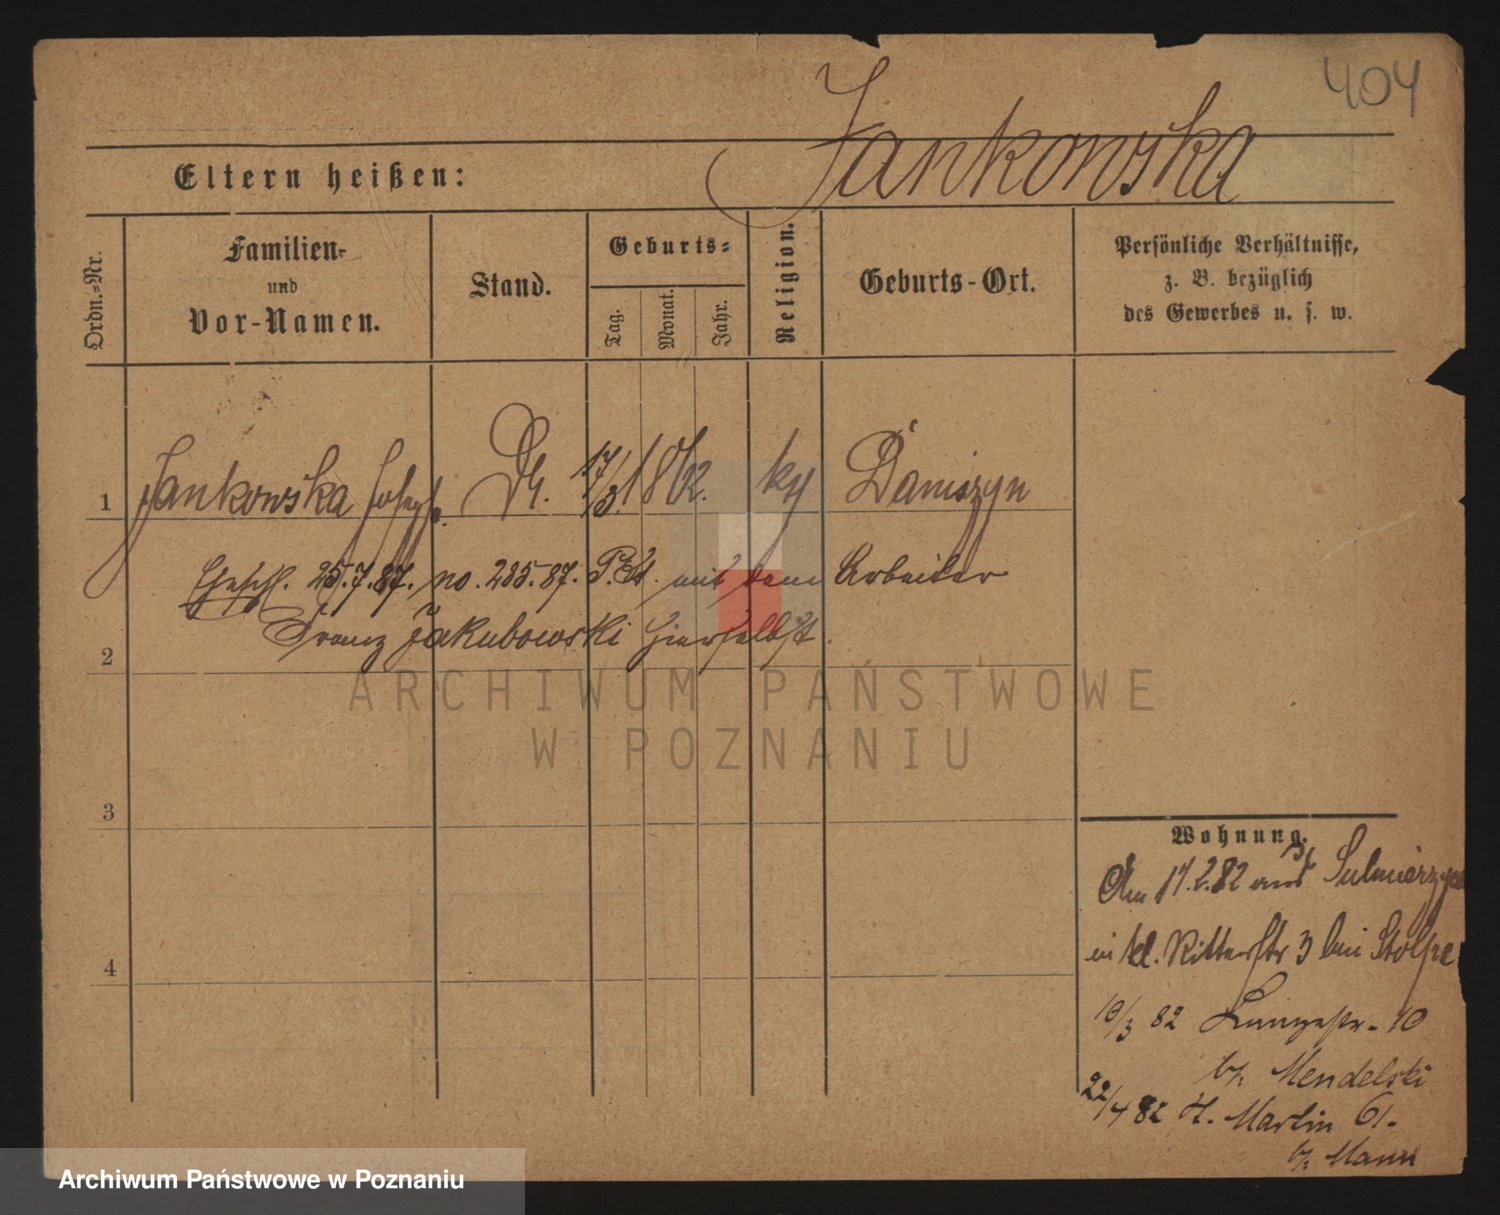 404
Jankowska
Eltern heißen:
Ordn.-Nr.
Familien-
und
Vor-Namen.
Stand.
Geburts-
Tag.
Monat.
Jahr.
Religion.
Geburts-Ort.
Persönliche Verhältnisse,
z. B. bezüglich
des Gewerbes u. s. w.
1 Jankowska Joseph. 17/3. 1862. Daniszyn
Ehschl. 25.7.87. no. 285.87. P.St. mit dem Arbeiter
Franz Jakubowski hierselbst.
2
3
4
Wohnung.
Am 17.2.82 aus Sulmierzyce
in kl. Ritterstr 3 bei Stolpe
10/3 82 Langestr. 10
b/. Mendelski
22/4 82 St. Martin 61.
b/. Mann
ARCHIWUM PAŃSTWOWE
W POZNANIU
Archiwum Państwowe w Poznaniu